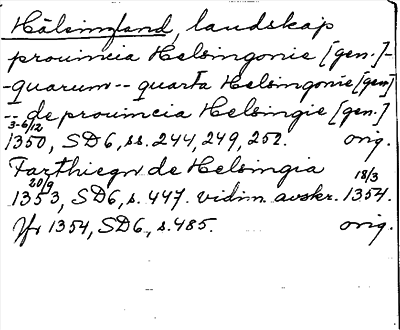 Hälsingland, landskap
prouincia Helsingonie [gen.]-
-quarum -- quarta Helsingonie [gen]
-- de prouincia Helsingie [gen.]
3-6/12
1350, SD6, ss. 244, 249, 252. orig.
Farthiegn de Helsingia
20/9 18/3
1353, SD6, s. 447. vidim. avskr. 1354.
Jfr 1354, SD6, s. 485. orig.